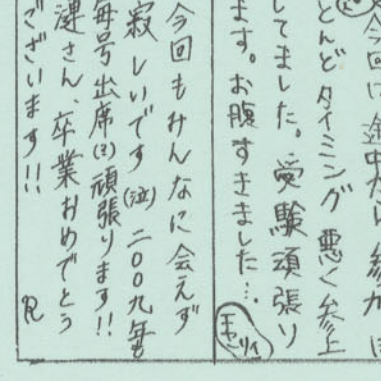 今回に途中から参加
とんどタイミング悪く参上
してました。受験頑張り
ます。お腹すきました…。
今回もみんなに会えず
寂しいです(泣)二〇〇九年も
毎号出席(?)頑張ります!!
漣さん、卒業おめでとう
ございます!! R